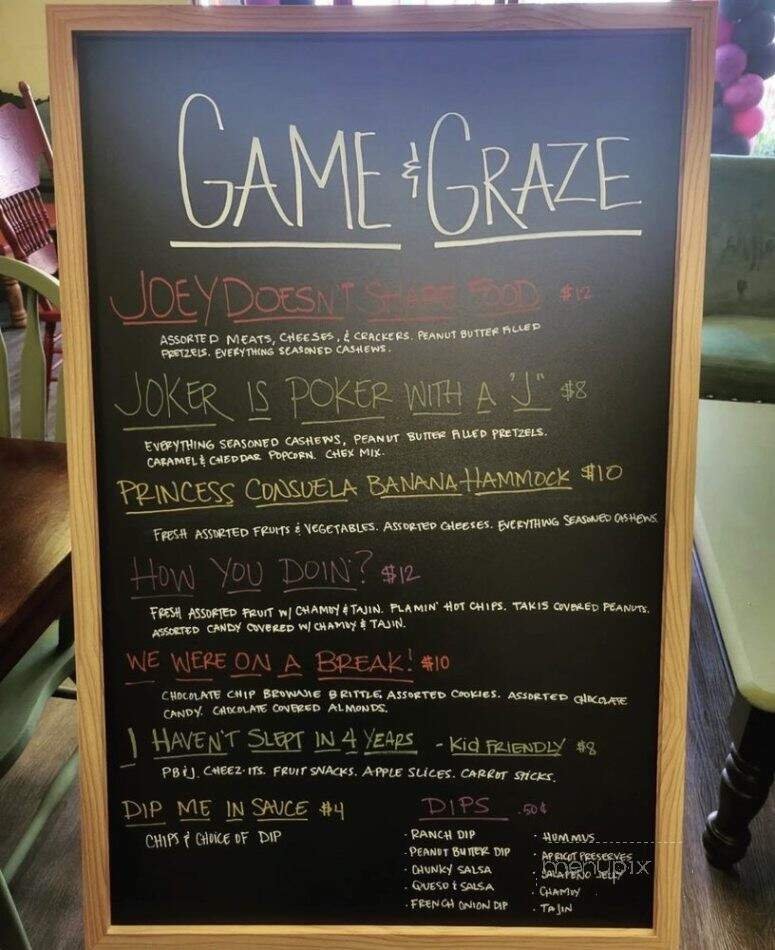 GAME & GRAZE
JOEY DOESN'T SHARE FOOD $12
ASSORTED MEATS, CHEESES, & CRACKERS. PEANUT BUTTER FILLED
PRETZELS. EVERYTHING SEASONED CASHEWS.
JOKER IS POKER WITH A "J" $8
EVERYTHING SEASONED CASHEWS, PEANUT BUTTER FILLED PRETZELS.
CARAMEL & CHEDDAR POPCORN. CHEX MIX.
PRINCESS CONSUELA BANANA HAMMOCK $10
FRESH ASSORTED FRUITS & VEGETABLES. ASSORTED CHEESES. EVERYTHING SEASONED CASHEWS.
HOW YOU DOIN'? $12
FRESH ASSORTED FRUIT W/ CHAMOY & TAJIN. FLAMIN' HOT CHIPS. TAKIS COVERED PEANUTS.
ASSORTED CANDY COVERED W/ CHAMOY & TAJIN.
WE WERE ON A BREAK! $10
CHOCOLATE CHIP BROWNIE BRITTLE, ASSORTED COOKIES. ASSORTED CHOCOLATE
CANDY. CHOCOLATE COVERED ALMONDS.
I HAVEN'T SLEPT IN 4 YEARS - Kid FRIENDLY $8
PB&J. CHEEZ-ITS. FRUIT SNACKS. APPLE SLICES. CARROT STICKS.
DIP ME IN SAUCE $4
CHIPS & CHOICE OF DIP
DIPS .50¢
· RANCH DIP
· PEANUT BUTTER DIP
· CHUNKY SALSA
· QUESO & SALSA
· FRENCH ONION DIP
· HUMMUS
· APRICOT PRESERVES
· JALAPENO JELLY
· CHAMOY
· TAJIN
menupix